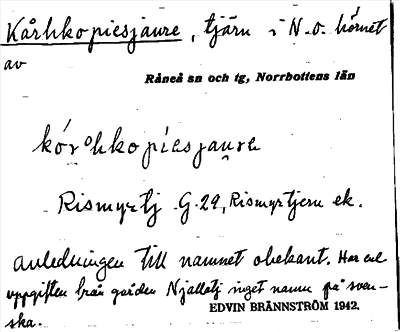 Kårhkopiesjaure, tjärn i N.o. hörnet
av
Råneå sn och tg, Norrbottens län
kórhkopiesjaure
Rismyrtj G.29, Rismyrtjern ek.
anledningen till namnet obekant. Har enl
uppgiften från gården Njallatj inget namn på sven-
ska.
EDVIN BRÄNNSTRÖM 1942.